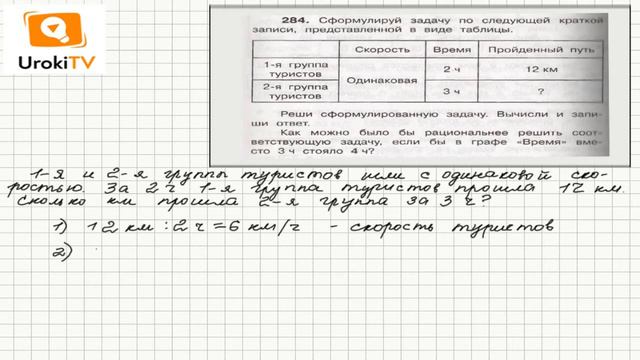 UrokiTV
284. Сформулируй задачу по следующей краткой
записи, представленной в виде таблицы.
Скорость Время Пройденный путь
1-я группа туристов Одинаковая 2 ч 12 км
2-я группа туристов 3 ч ?
Реши сформулированную задачу. Вычисли и запи-
ши ответ.
Как можно было бы рациональнее решить соот-
ветствующую задачу, если бы в графе «Время» вме-
сто 3 ч стояло 4 ч?
1-я и 2-я группы туристов шли с одинаковой ско-
ростью. За 2 ч 1-я группа туристов прошла 12 км.
Сколько км прошла 2-я группа за 3 ч?
1) 12 км : 2 ч = 6 км/ч - скорость туристов
2)